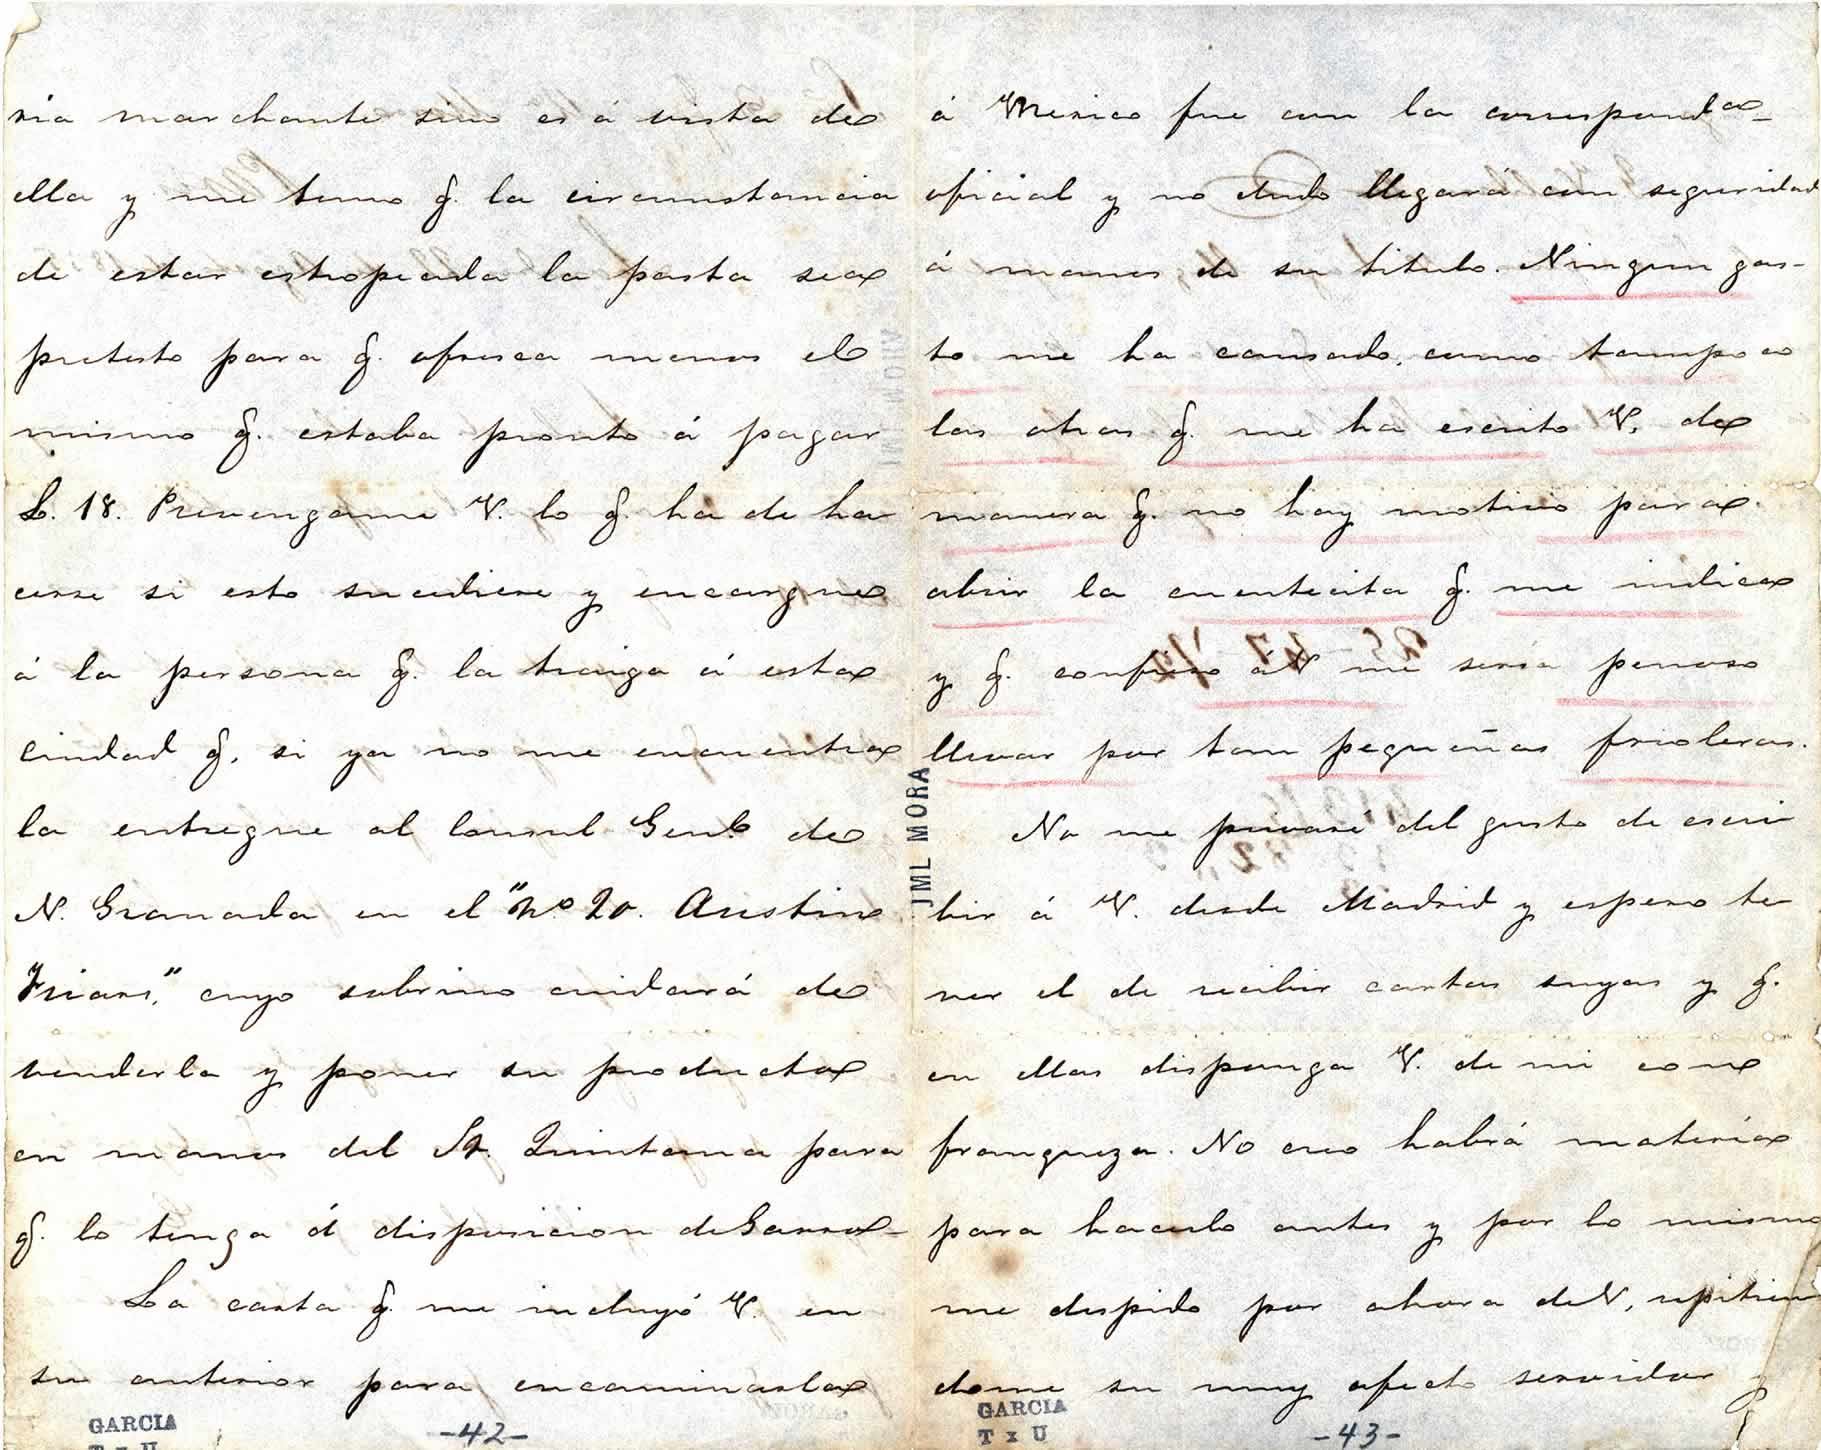 ria marchante sino es á vista de
ella y me temo q. la circunstancia
de estar estropeada la pasta sea
pretesto para q. ofresca menos el
mismo q. estaba pronto á pagar
L. 18. Prevengame V. lo q. ha de ha
cerse si esto sucediere y encargue
á la persona q. la traiga á esta
Ciudad q. si ya no me encuentra
la entregue al Consul Genl. de
N. Granada en el "No. 20. Austin
Friars," cuyo sobrino cuidará de
venderla y poner su producto
en manos del Sr. Quintana para
q. lo tenga á disposicion de Garro-
La carta q. me incluyó V. en
su anterior para encaminarla
GARCIA
T x U
-42-
JML MORA
á Mexico fue con la correspond.a
oficial y no dudo llegará con seguridad
á manos de su titulo. Ningun gas-
to me ha causado, como tampoco
las otras q. me ha escrito V, de
manera q. no hay motivo para
abrir la cuentecita q. me indica
y q. confieso á V me sería penoso
llevar por tan pequeñas frioleras.
No me privaré del gusto de escri
bir á V. desde Madrid y espero te
ner el de recibir cartas suyas y q.
en ellas disponga V. de mi con
franqueza. No creo habrá materia
para hacerlo antes y por lo mismo
me despido por ahora de V, repitien
dome su muy afecto servidor y
GARCIA
T x U
-43-